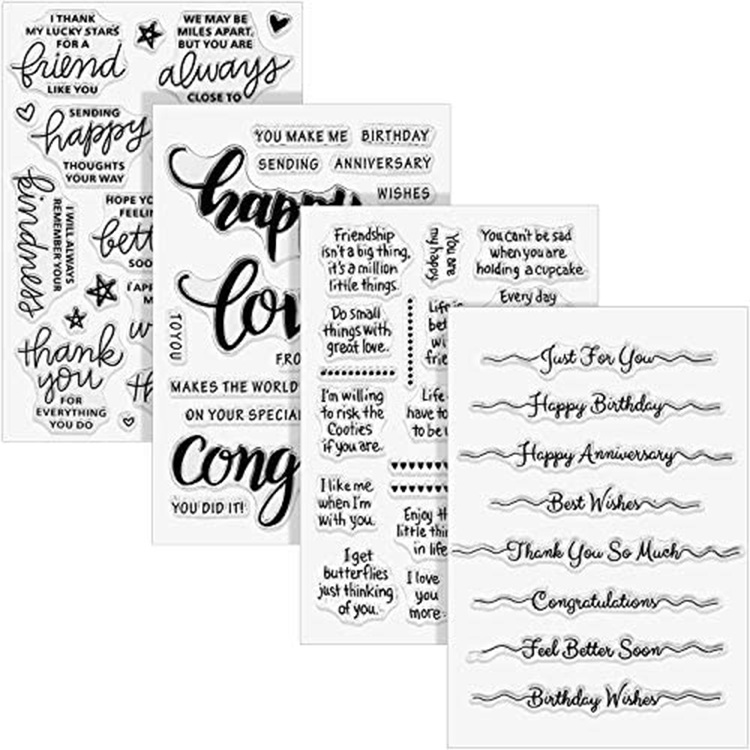 I THANK
MY LUCKY STARS
FOR A
friend
LIKE YOU
WE MAY BE
MILES APART,
BUT YOU ARE
always
CLOSE TO
SENDING
happy
THOUGHTS
YOUR WAY
kindness
I WILL ALWAYS
REMEMBER YOUR
HOPE YO
FEELIN
bett
SOO
I APP
M
thank
you
FOR
EVERYTHING
YOU DO
YOU MAKE ME
BIRTHDAY
SENDING
ANNIVERSARY
WISHES
happy
lov
TO YOU
FRO
MAKES THE WORLD
ON YOUR SPECIA
Cong
YOU DID IT!
Friendship
isn't a big thing,
it's a million
little things.
You are
my happy
You can't be sad
when you are
holding a cupcake.
Every day
Do small
things with
great love.
Life is
bet
wi
frie
I'm willing
to risk the
Cooties
if you are.
Life
have to
to be u
I like me
when I'm
with you.
Enjoy th
little thin
in life
I get
butterflies
just thinking
of you.
I love
you
more
Just For You
Happy Birthday
Happy Anniversary
Best Wishes
Thank You So Much
Congratulations
Feel Better Soon
Birthday Wishes